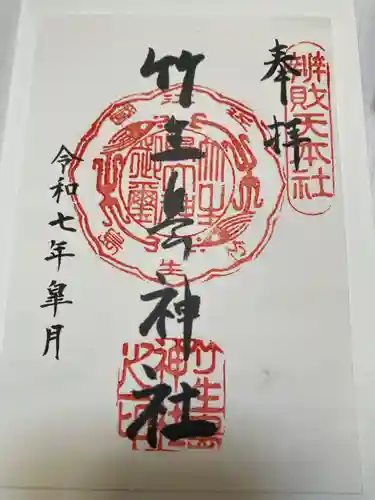 奉拝
辨財天本社
竹生島神社
令和七年皐月
竹生島
神社
之印